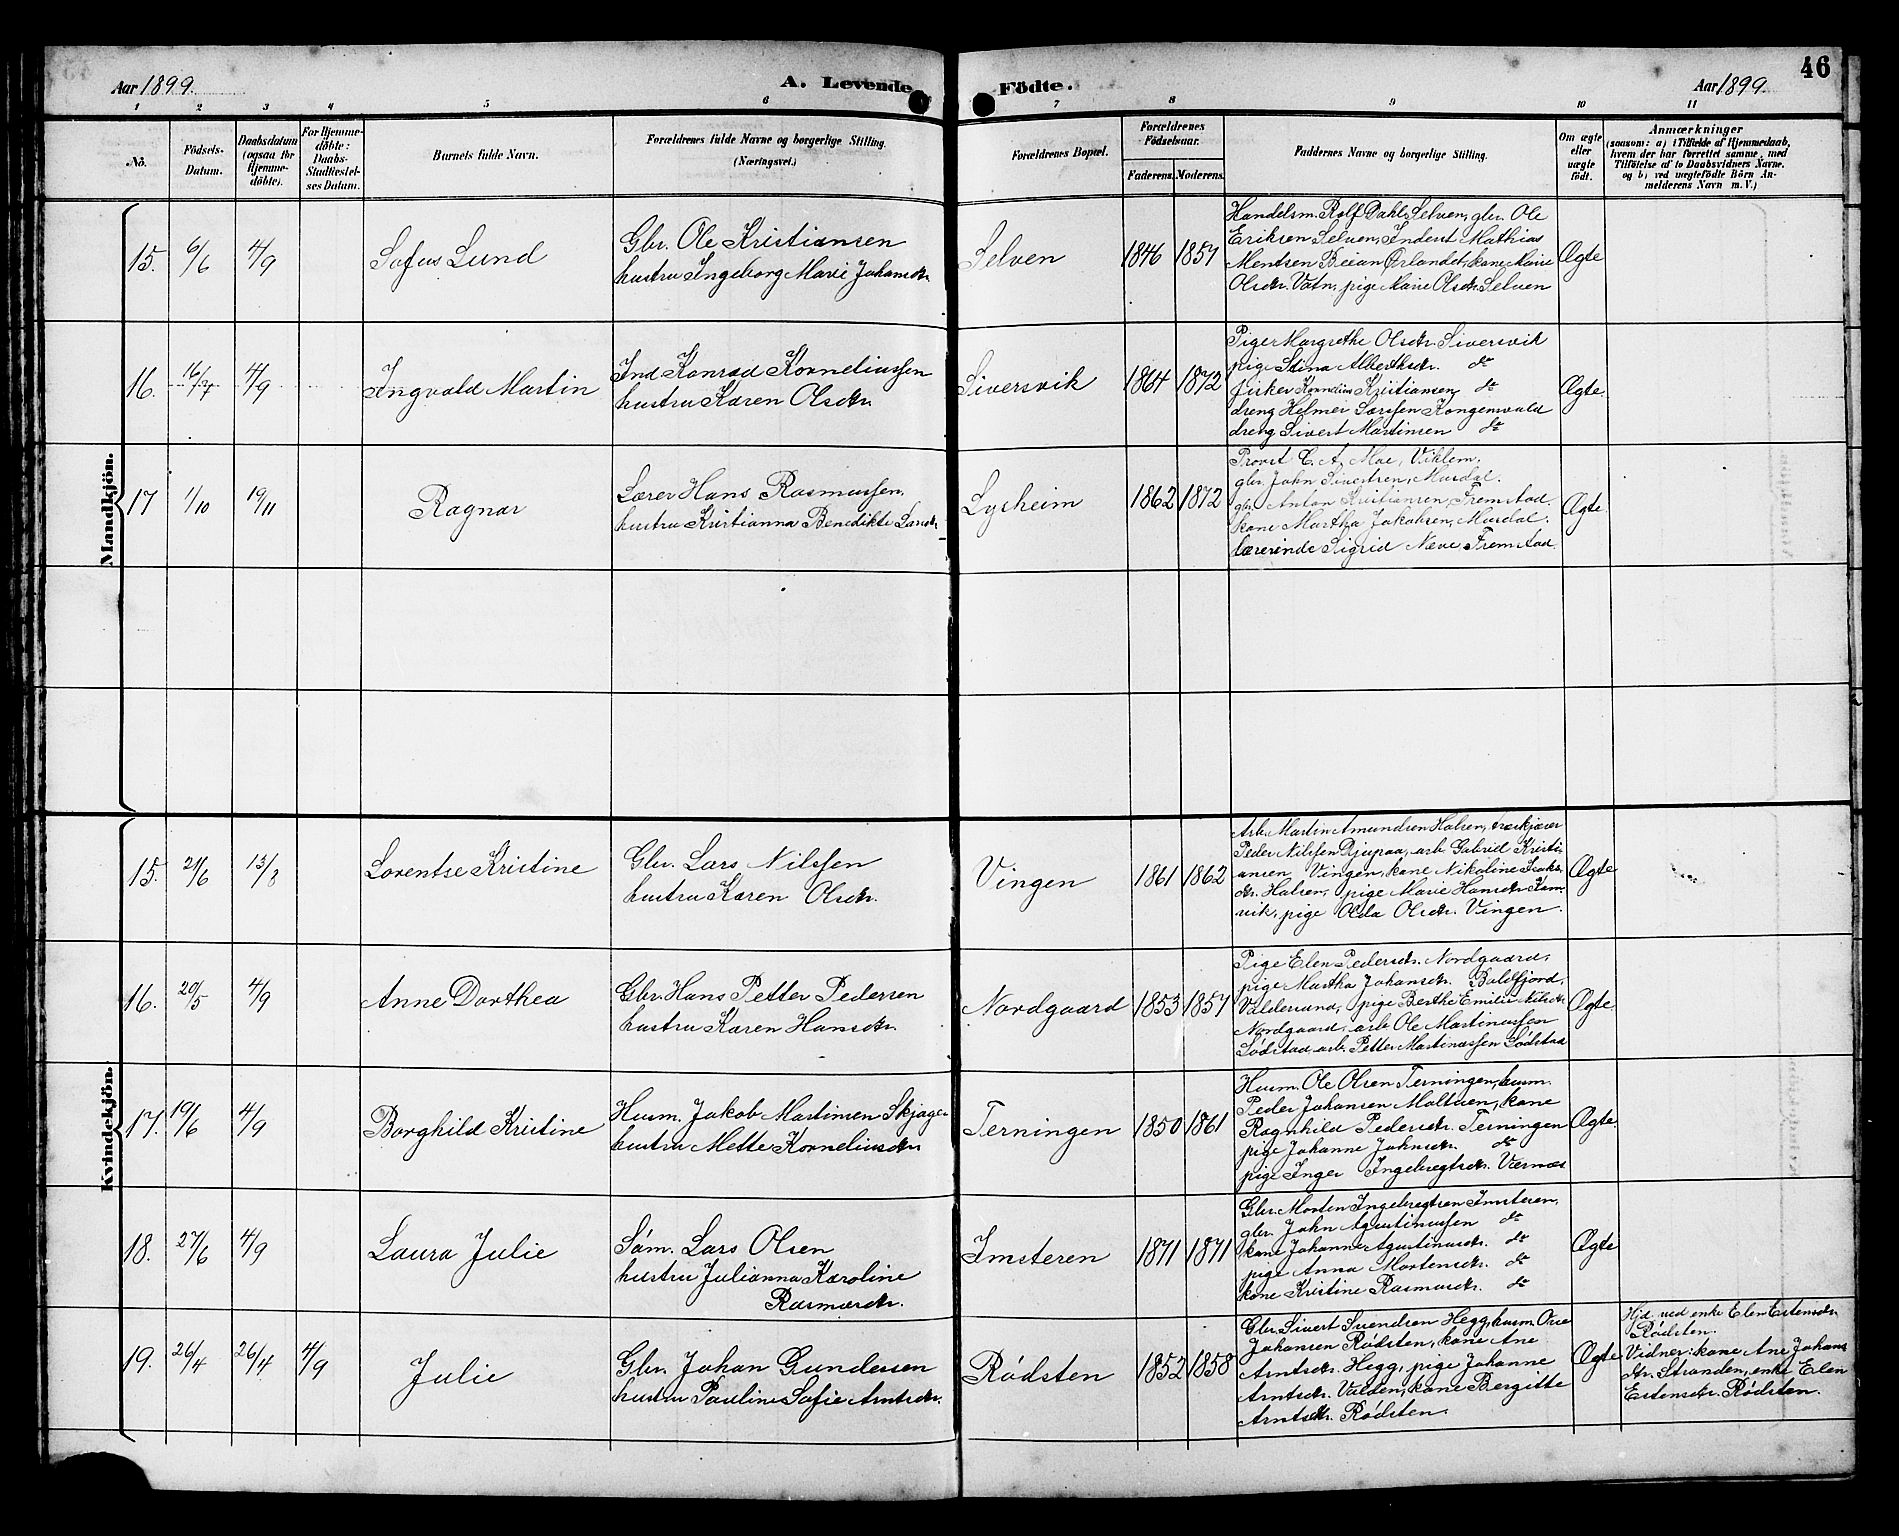 46
Aar 1899.
A. Levende Födte.
Aar 1899
1 2 3 4 5 6 7 8 9 10 11
No.
Födsels-Datum.
Daabsdatum (ogsaa for Hjemme-döbte).
For Hjemme-döbte: Daabs-Stadfæstel-ses Datum.
Barnets fulde Navn.
Forældrenes fulde Navne og borgerlige Stilling. (Næringsvei.)
Forældrenes Bopæl.
Forældrenes Födselsaar.
Faderens. Moderens.
Faddernes Navne og borgerlige Stilling.
Om ægte eller uægte födt.
Anmærkninger
(saasom: a) i Tilfælde af Hjemmedaab,
hvem der har forrettet samme, med
Tilföielse af to Daabsvidners Navne.
og b) ved uægtefödte Börn An-
melderens Navn m. V.)
Mandkjön.
15. 6/6 4/9 Sofus Lund
Gbr. Ole Kristiansen
hustru Ingeborg Marie Johansdr.
Selven 1846 1857
Handelsm. Rolf Dahl Selven, gbr. Ole
Eriksen Selven, Inderst Mathias
Mentsen Beian Ørlandet, kone Marie
Olsdtr. Vatn, pige Marie Olsdtr. Selven
Ægte
16. 16/7 4/9 Ingvald Martin
Ind Konrad Korneliussen
hustru Karen Olsdtr.
Siversvik 1864 1872
Pige Margrethe Olsdtr. Siversvik
pige Stina Albertsdtr. do
fisker Kornelius Kristiansen do
dreng Helmer Larssen Kongensvold
dreng Sivert Martinsen do
Ægte.
17 1/10 19/11 Ragnar
Lærer Hans Rasmussen,
hustru Kristianna Benedikte
Lysheim 1862 1872
Provst C. A. Moe, Viklem.
gbr. John Sivertsen, Mardal.
gbr. Anton Kristiansen, Fremstad.
kone Martha Jakobsen, Mardal.
lærerinde Sigrid Næve Fremstad.
Ægte
Kvindekjön.
15. 21/6 13/8 Lorentse Kristine
Gbr. Lars Nilssen
hustru Karen Olsdtr.
Vingen 1861 1862
Arb. Martin Amundsen Halsen, træskjærer
Peder Nilssen Djupaa, arb Gabriel Kristi
ansen Vingen, kone Nikoline Isaks
dtr. Halsen, pige Marie Hansdtr.
vik, pige Olda Olsdtr. Vingen.
Ægte
16. 20/5 4/9 Anne Dorthea
Gbr. Hans Petter Pedersen
hustru Karen Hansdtr.
Nordgaard 1853 1857
Pige Elen Pedersdtr. Nordgaard,
pige Martha Johansdtr.
Valdersund, pige Berthe Emilie Nilsdtr
Nordgaard, arb. Ole Martinussen
Sødstad arb. Petter Martinussen Sødstad
Ægte.
17. 19/6 4/9 Borghild Kristine
Husm. Jakob Martinsen
hustru Mette Korneliusdtr.
Terningen 1850 1861
Husm. Ole Olsen Terningen, husm.
Peder Johansen Moltuen, kone
Ragnhild Pedersdtr. Terningen
pige Johanne Johnsdtr. do
pige Inger Ingebregtsdtr. Værnæs
Ægte.
18. 27/6 4/9 Laura Julie
Søm. Lars Olsen
hustru Julianna Karoline
Rasmusdtr.
Imsteren 1871 1871
Gbr. Morten Ingebregtsen Imsteren,
gbr. John Agustinussen do
kone Johanne Agustinusdtr. do
pige Anna Mortensdtr. do
kone Kristine Rasmusdtr. do
Ægte
19. 26/4 26/4 4/9 Julie
Gbr. Johan Gundersen
hustru Pauline Sofie Arntsdtr.
Rødsten 1852 1858
Gbr. Sivert Svendsen Hegg, husm. Ove
Johansen Rødsten, kone Ane
Arntsdtr. Hegg, pige Johanne
Arntsdtr. Valden, kone Bergitte
Arntsdtr. Rødsten.
Ægte
Hjd. ved enke Elen Estensdtr
Rødsten.
Vidner: kone Ane Johans
dtr. Stranden, enke Elen
Estensdtr. Rødsten.